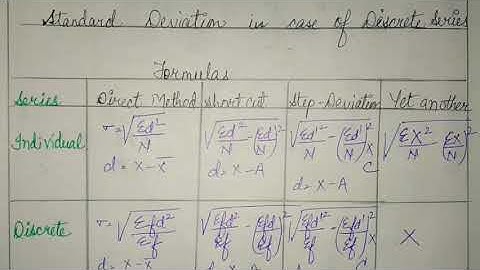 Standard Deviation in case of Discrete Series
Formulas
Series Direct Method Short cut Step-Deviation Yet another
Individual σ=√(Σd²/N) √(Σd²/N - (Σd/N)²) √(Σd'²/N - (Σd'/N)²) x C √(ΣX²/N (ΣX/N)²)
d = X - X̄ d = X - A d = X - A
Discrete σ=√(Σfd²/Σf) √(Σfd²/Σf - (Σfd/Σf)²) √(Σfd'²/Σf - (Σfd'/Σf)²) x X
d = X - X̄